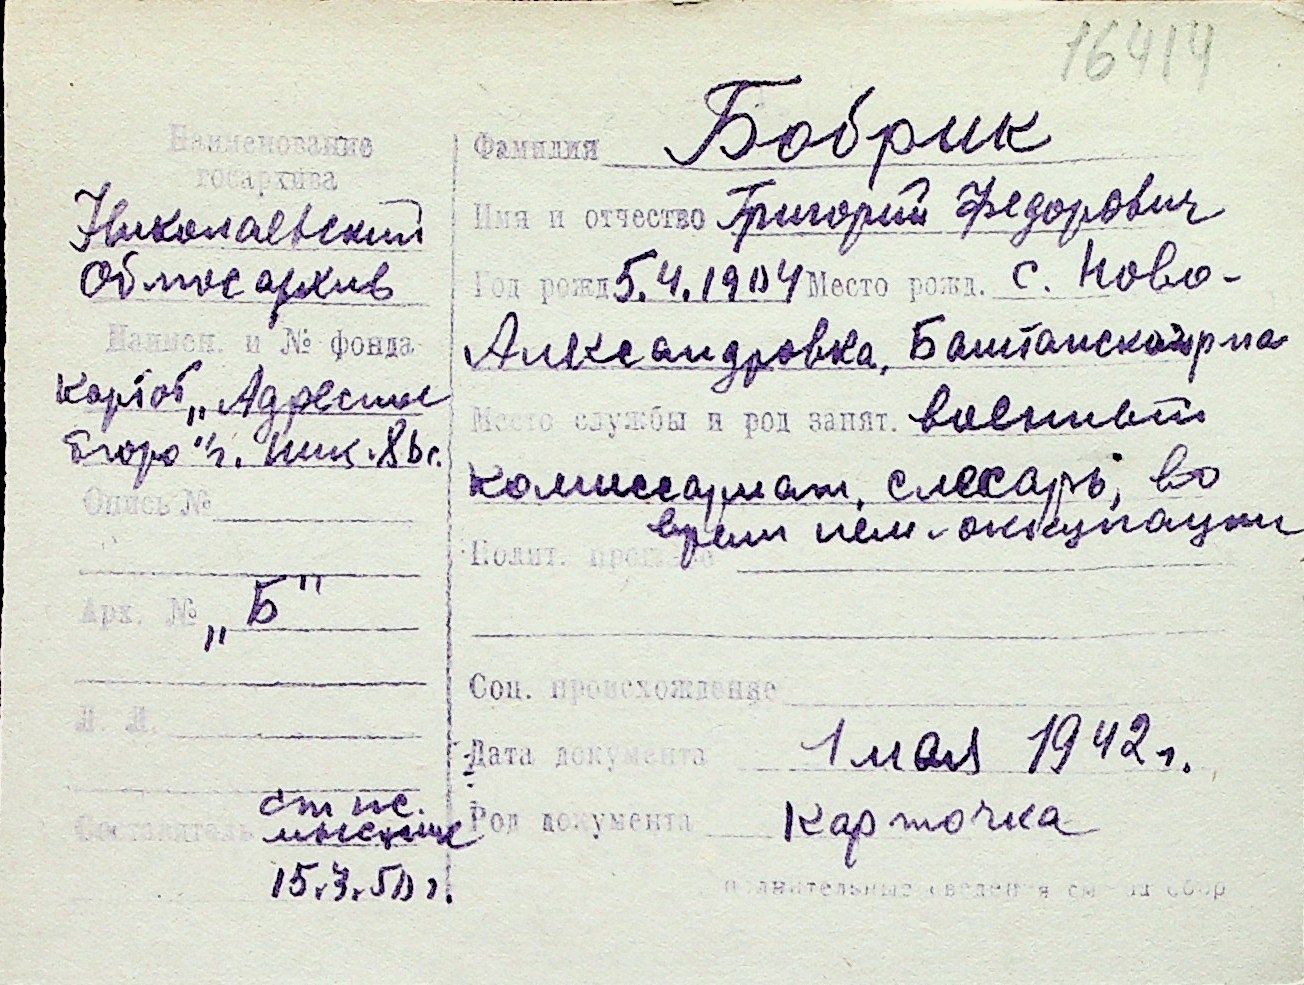 16414
Наименование
госархива
Николаевский
Облгосархив
Наимен. и № фонда
Картот. „Адресное
Бюро" г. Ник.
Опись №
Арх. № „Б"
Л. Л.
Составитель ст нс.
15.3.50 г.
Фамилия Бобрик
Имя и отчество Григорий Федорович
Год рожд 5.4.1904 Место рожд. с. Ново-
Александровка, Баштанского р-на
Место службы и род занят. военный
комиссариат, слесарь, во
время нем-оккупации
Полит. прошлое
Соц. происхождение
Дата документа 1 мая 1942 г.
Род документа Карточка
полнительные сведения см на обор